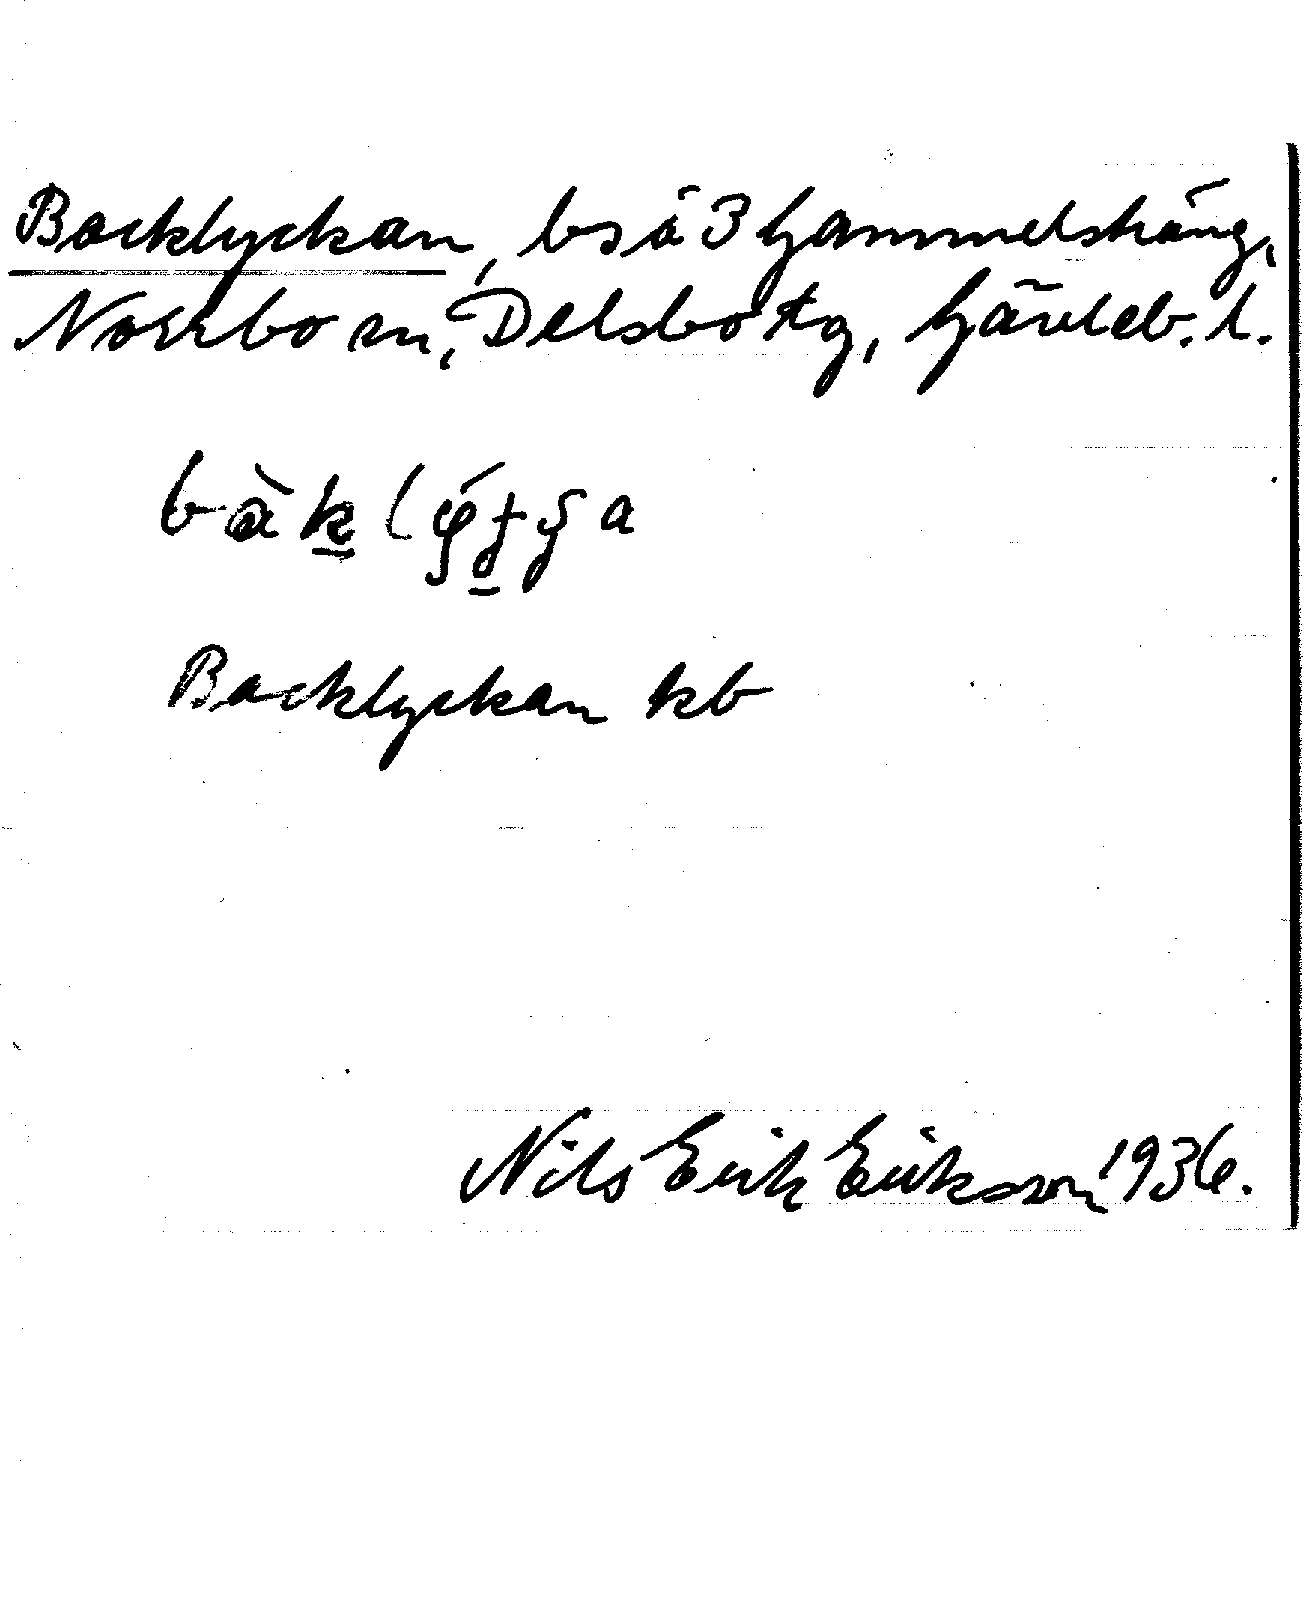 Backlyckan, bs å 3 Gammelsträng,
Norrbo sn, Delsbo tg, Gävleb. l.
Backlyckan kb
Nils Erik Eriksson 1936.